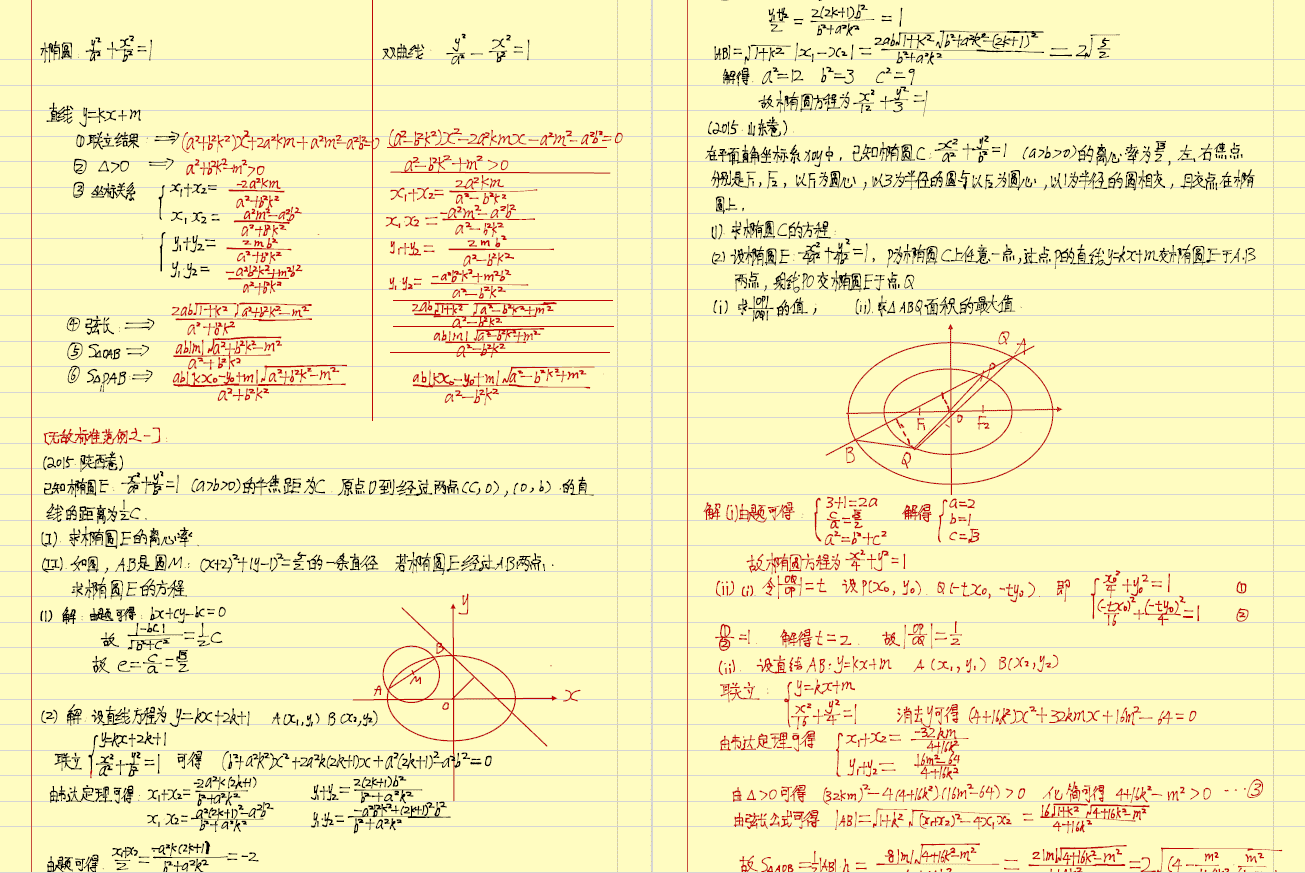 椭圆: y²/a² + x²/b² = 1
双曲线: y²/a² - x²/b² = 1
直线 y=kx+m
①联立结果: ⇒ (a²+b²k²)x²+2a²km+a²m²-a²b²=0
(a²-b²k²)x²-2a²kmx-a²m²-a²b²=0
② Δ>0 ⇒ a²+b²k²-m²>0
a²-b²k²+m²>0
③ 坐标关系 { x₁+x₂= -2a²km/(a²+b²k²)
x₁x₂= (a²m²-a²b²)/(a²+b²k²)
{ y₁+y₂= 2mb²/(a²+b²k²)
y₁y₂= (-a²b²k²+m²b²)/(a²+b²k²)
x₁+x₂= 2a²km/(a²-b²k²)
x₁x₂= (-a²m²-a²b²)/(a²-b²k²)
y₁+y₂= 2mb²/(a²-b²k²)
y₁y₂= (-a²b²k²+m²b²)/(a²-b²k²)
④ 弦长: ⇒ 2ab√(1+k²) √(a²+b²k²-m²)/(a²+b²k²)
2ab√(1+k²) √(a²-b²k²+m²)/(a²-b²k²)
⑤ S△OAB ⇒ ab|m|√(a²+b²k²-m²)/(a²+b²k²)
ab|m|√(a²-b²k²+m²)/(a²-b²k²)
⑥ S△PAB ⇒ ab|kx₀-y₀+m|√(a²+b²k²-m²)/(a²+b²k²)
ab|kx₀-y₀+m|√(a²-b²k²+m²)/(a²-b²k²)
[无敌标准范例之一]:
(2015·陕西卷)
已知椭圆E: x²/a²+y²/b²=1 (a>b>0)的半焦距为C. 原点O到经过两点(C,0),(0,b)的直
线的距离为½C.
(I). 求椭圆E的离心率.
(II). 如图, AB是圆M: (x+2)²+(y-1)²=5/2的一条直径 若椭圆E经过AB两点.
求椭圆E的方程
(1) 解: 由题可得: bx+cy-bc=0
故 |-bc|/√(b²+c²) = ½C
故 e=c/a=√3/2
y
B
A
M
O
x
(2) 解: 设直线方程为 y=kx+2k+1 A(x₁,y₁) B(x₂,y₂)
联立 { y=kx+2k+1
x²/a²+y²/b²=1 可得 (b²+a²k²)x²+2a²k(2k+1)x+a²(2k+1)²-a²b²=0
由韦达定理可得: x₁+x₂= -2a²k(2k+1)/(b²+a²k²) y₁+y₂= 2(2k+1)b²/(b²+a²k²)
x₁x₂= (a²(2k+1)²-a²b²)/(b²+a²k²) y₁y₂= (-a²b²k²+(2k+1)²b²)/(b²+a²k²)
由题可得: (x₁+x₂)/2 = -a²k(2k+1)/(b²+a²k²) = -2
(y₁+y₂)/2 = 2(2k+1)b²/(b²+a²k²) = 1
|AB|=√(1+k²) |x₁-x₂| = 2ab√(1+k²)√(b²+a²k²-(2k+1)²)/(b²+a²k²) = 2√(5/2)
解得: a²=12 b²=3 c²=9
故椭圆方程为 x²/12+y²/3=1
(2015·山东卷).
在平面直角坐标系xoy中, 已知椭圆C: x²/a²+y²/b²=1 (a>b>0)的离心率为√3/2, 左,右焦点
分别是F₁, F₂, 以F₁为圆心, 以3为半径的圆与以F₂为圆心, 以1为半径的圆相交, 且交点在椭
圆上.
(1). 求椭圆C的方程:
(2). 设椭圆E: x²/4a²+y²/4b²=1, P为椭圆C上任意一点, 过点P的直线y=kx+m交椭圆E于A.B
两点, 射线PO交椭圆E于点Q
(i) 求|OQ|/|OP|的值; (ii).求△ABQ面积的最大值.
Q
A
P
F₁
O
F₂
B
Q
解(1)由题可得: { 3+1=2a
c/a=√3/2
a²=b²+c² 解得 { a=2
b=1
c=√3
故椭圆方程为 x²/4+y²=1
(ii) (i). 令|OQ/OP|=t 设P(x₀,y₀). Q(-tx₀, -ty₀). 即 { x₀²/4+y₀²=1 ①
(-tx₀)²/16+(-ty₀)²/4=1 ②
①/②=1. 解得t=2. 故|OP/OQ|=1/2
(ii). 设直线AB: y=kx+m A(x₁,y₁) B(x₂,y₂)
联立: { y=kx+m
x²/16+y²/4=1 消去y可得 (4+16k²)x²+32kmx+16m²-64=0
由韦达定理可得 { x₁+x₂= -32km/(4+16k²)
y₁+y₂= (16m²-64)/(4+16k²)
由Δ>0可得 (32km)²-4(4+16k²)(16m²-64)>0 化简可得 4+16k²-m²>0 …③
由弦长公式可得 |AB|=√(1+k²) √((x₁+x₂)²-4x₁x₂) = 16√(1+k²)√(4+16k²-m²)/(4+16k²)
故 S△AOB=½|AB|h = 8|m|√(4+16k²-m²) = 2|m|√(4+16k²-m²) =2√((4- m² m²